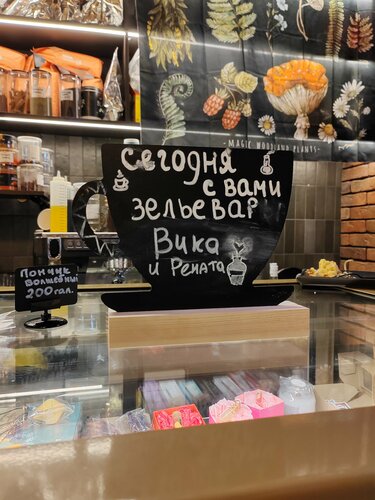 - MAGIC WOODLAND PLANTS -
Сегодня
с вами
зельевар
Вика
и Рената
Пончик
волшебный
200 гал.